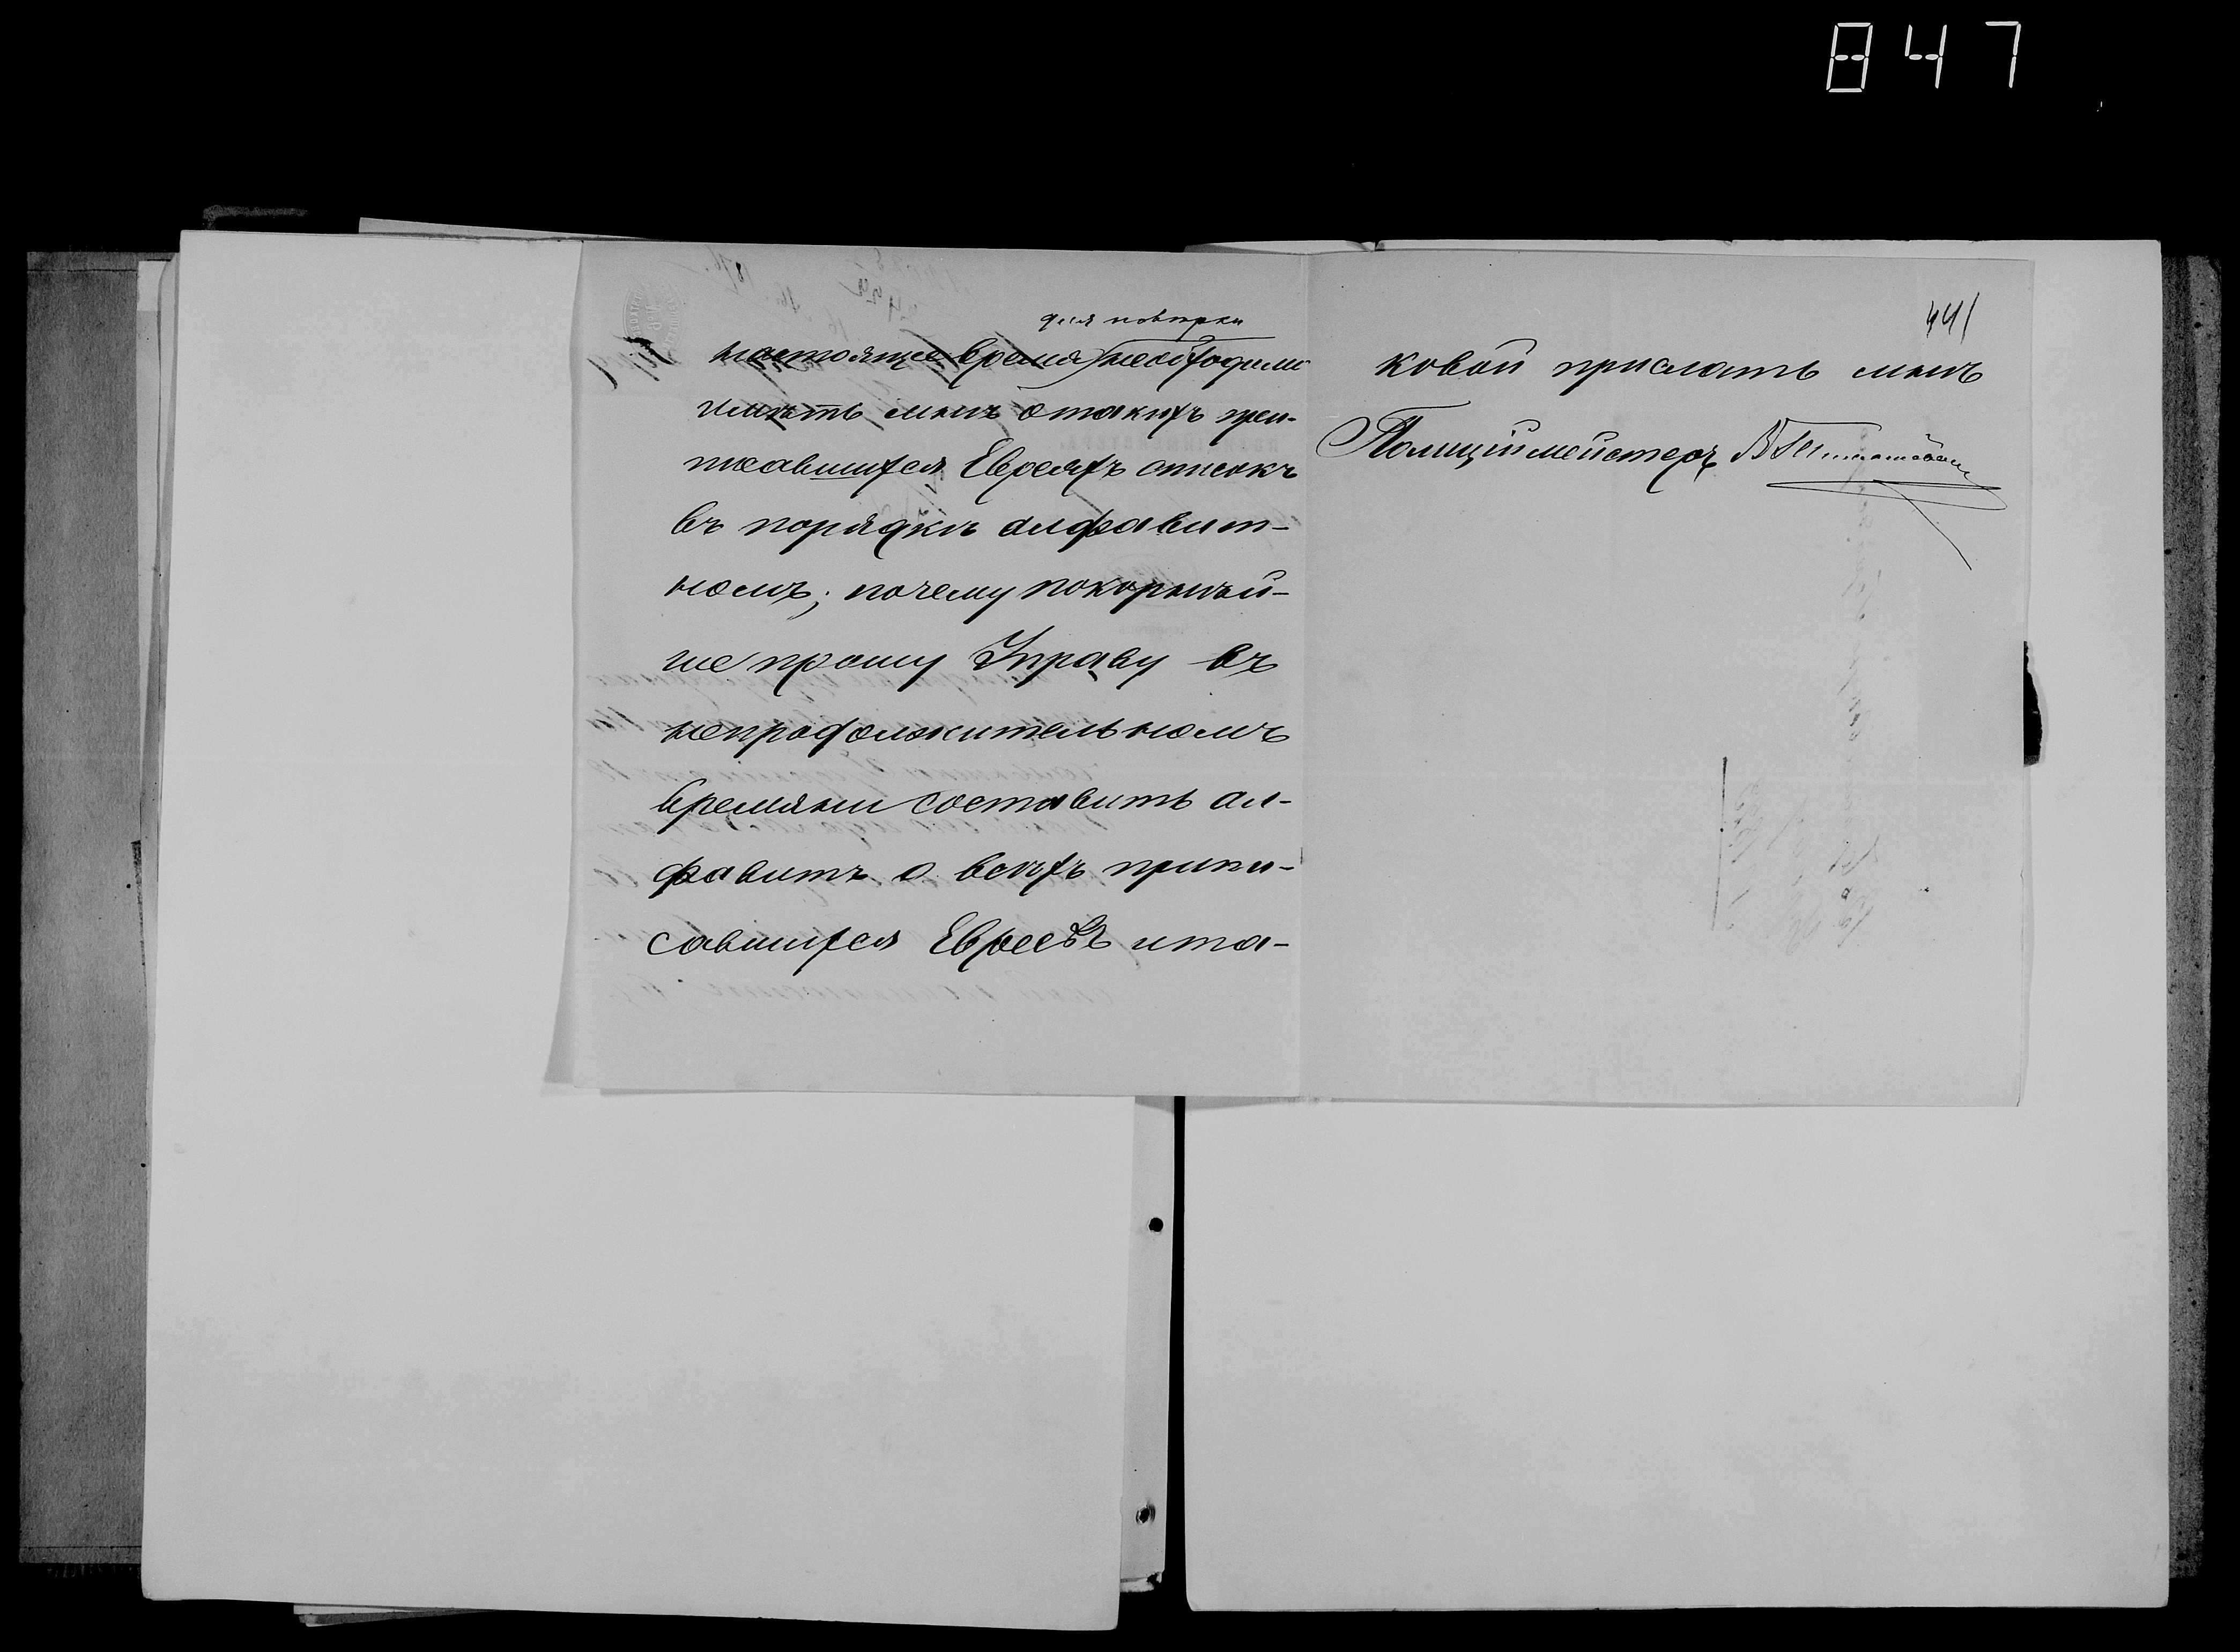 847
для повѣрки
настоящее время необходимо
имѣть мнѣ о такихъ при-
писавшихся Евреяхъ списокъ
въ порядкѣ алфавит-
номъ; почему покорнѣй-
ше прошу Управу въ
непродолжительномъ
времяни составить ал-
фавитъ о всѣхъ припи-
савшихся Евреевъ и та-
441
ковой прислать мнѣ
Полиціймейстеръ